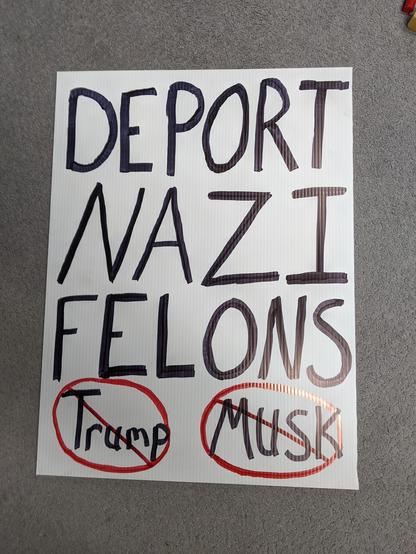 DEPORT
NAZI
FELONS
Trump Musk